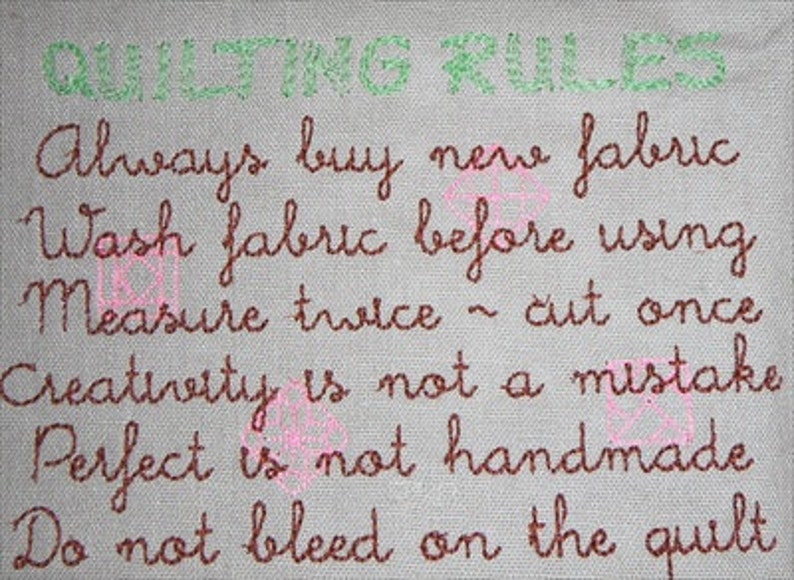 QUILTING RULES
Always buy new fabric
Wash fabric before using
Measure twice ~ cut once
Creativity is not a mistake
Perfect is not handmade
Do not bleed on the quilt